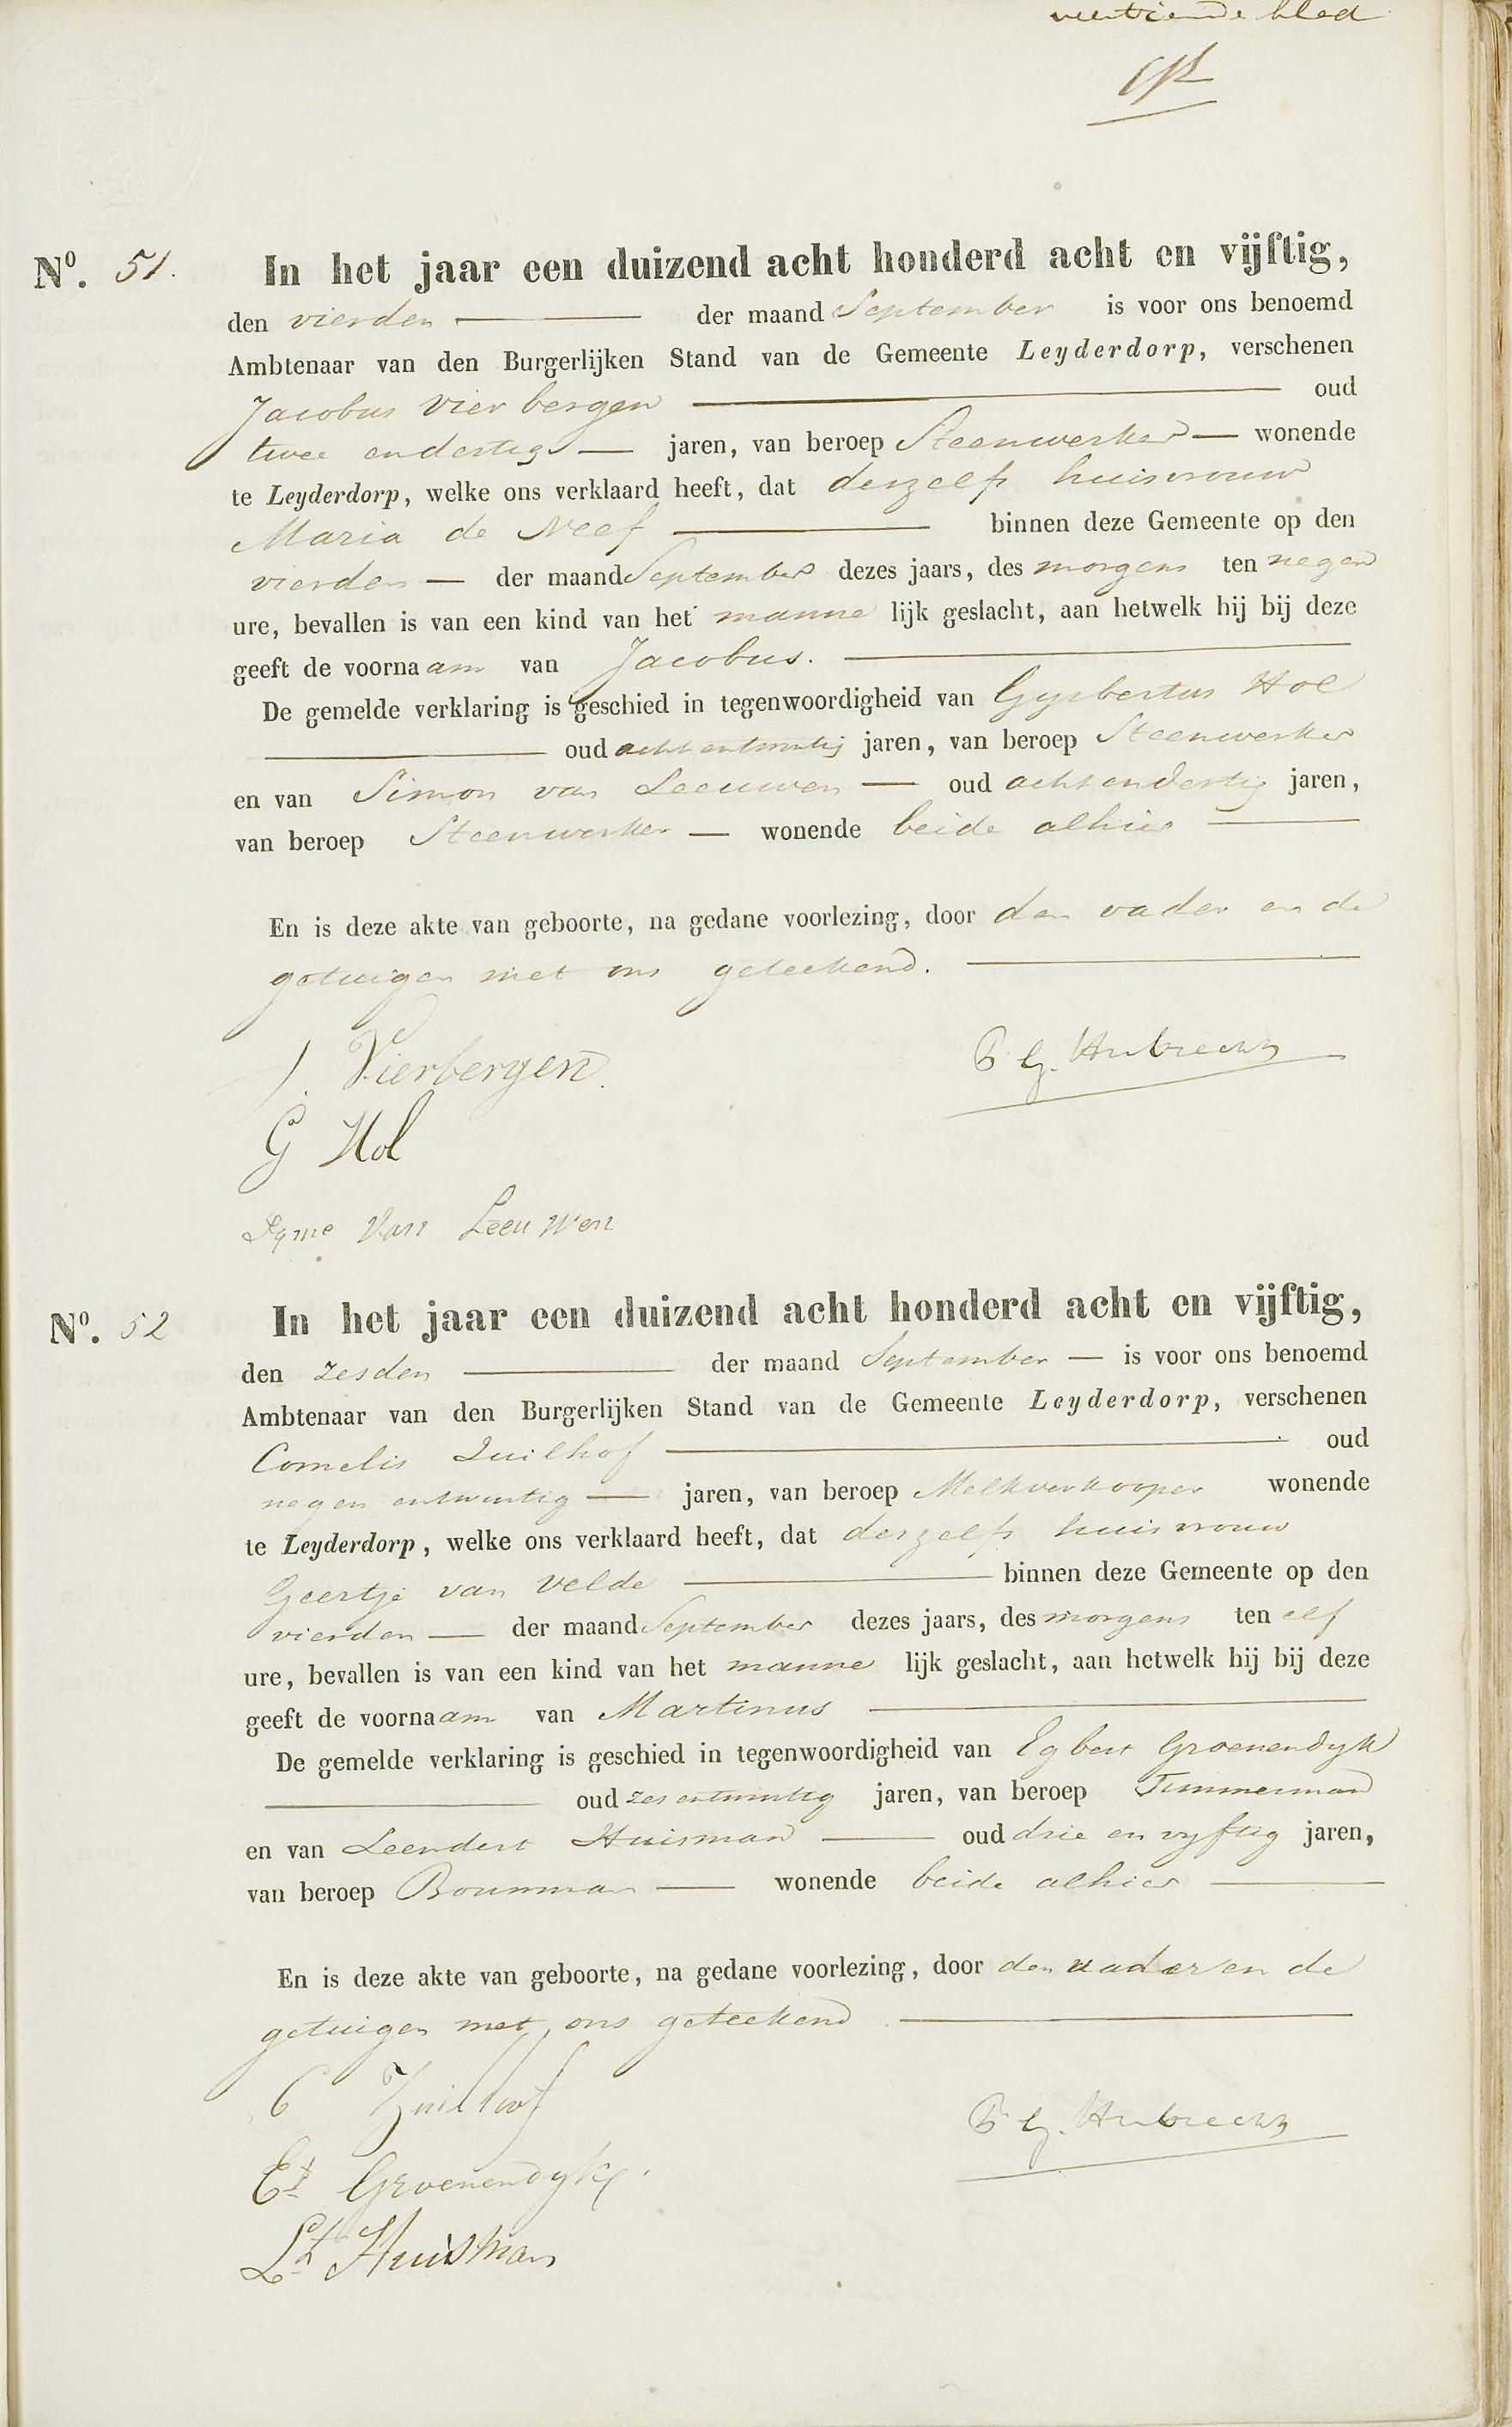 veertiende blad
Nº. 51. In het jaar een duizend acht honderd acht en vijftig,
den vierden der maand September is voor ons benoemd
Ambtenaar van den Burgerlijken Stand van de Gemeente Leyderdorp, verschenen
Jacobus Vierbergen oud
twee en dertig jaren, van beroep Steenwerker wonende
te Leyderdorp, welke ons verklaard heeft, dat deszelfs huisvrouw
Maria de Neef binnen deze Gemeente op den
vierden der maand September dezes jaars, des morgens ten negen
ure, bevallen is van een kind van het mannelijk geslacht, aan hetwelk hij bij deze
geeft de voornaam van Jacobus.
De gemelde verklaring is geschied in tegenwoordigheid van Gysbertus Hol
oud acht entwintig jaren, van beroep Steenwerker
en van Simon van Leeuwen oud acht en dertig jaren,
van beroep Steenwerker wonende beide alhier
En is deze akte van geboorte, na gedane voorlezing, door den vader en de
getuigen met ons geteekend.
J. Vierbergen
G Hol
Van Leeuwen
Nº. 52 In het jaar een duizend acht honderd acht en vijftig,
den zesden der maand September is voor ons benoemd
Ambtenaar van den Burgerlijken Stand van de Gemeente Leyderdorp, verschenen
Cornelis Zuilhof oud
negen entwintig jaren, van beroep Melkverkooper wonende
te Leyderdorp, welke ons verklaard heeft, dat deszelfs huisvrouw
Geertje van Velde binnen deze Gemeente op den
vierden der maand September dezes jaars, des morgens ten elf
ure, bevallen is van een kind van het mannelijk geslacht, aan hetwelk hij bij deze
geeft de voornaam van Martinus
De gemelde verklaring is geschied in tegenwoordigheid van Egbert Groenendyk
oud zes entwintig jaren, van beroep Timmerman
en van Leendert Huisman oud drie en vyftig jaren,
van beroep Bouwman wonende beide alhier
En is deze akte van geboorte, na gedane voorlezing, door den vader en de
getuigen met ons geteekend
C Zuilhof
Et Groenendyk
Lt Huisman